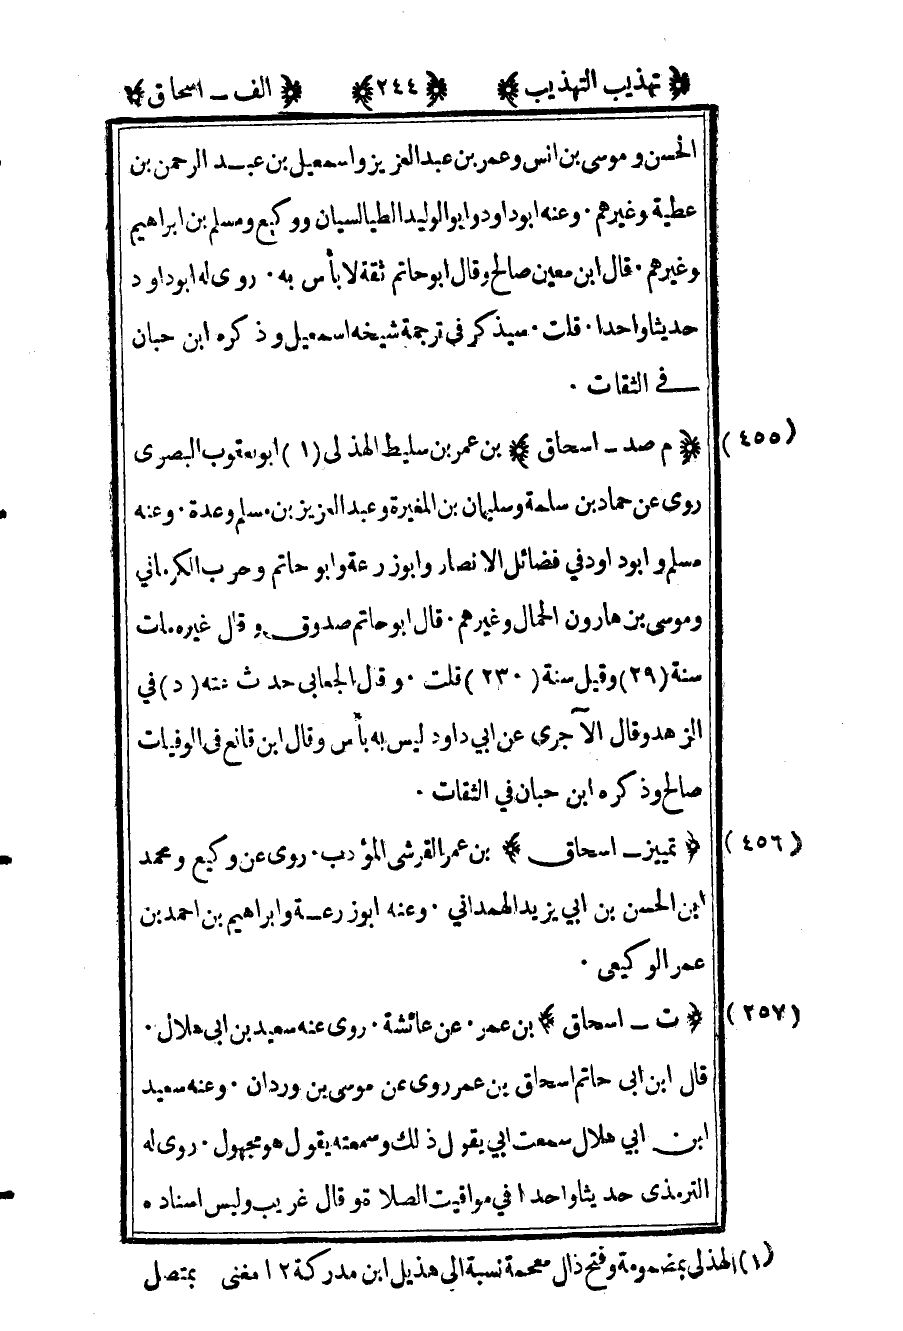 ﴿ تهذيب التهذيب ﴾ ﴿ ٢٤٤ ﴾ ﴿ الف ـ اسحاق ﴾
الحسن و موسى بن انس وعمر بن عبد العزيز واسمعيل بن عبد الرحمن بن
عطية وغيرهم ٠ وعنه ابوداود وابو الوليد الطيالسيان ووكيع ومسلم بن ابراهيم
وغيرهم ٠ قال ابن معين صالح وقال ابوحاتم ثقة لا بأس به ٠ روى له ابوداود
حديثا واحدا ٠ قلت ٠ سيذكر في ترجمة شيخه اسمعيل وذكره ابن حبان
في الثقات ٠
(٤٥٥) ﴿ م صد ـ اسحاق ﴾ بن عمر بن سليط الهذلى (١) ابو يعقوب البصرى
روى عن حماد بن سلمة وسليمان بن المغيرة وعبد العزيز بن مسلم وعدة ٠ وعنه
مسلم و ابوداود في فضائل الانصار وابوزرعة وابو حاتم وحرب الكرماني
وموسى بن هارون الحمال وغيرهم ٠ قال ابوحاتم صدوق وقال غيره مات
سنة (٢٩) وقيل سنة (٢٣٠) قلت ٠ وقال الجعابى حدث عنه (د) في
الزهد وقال الآجرى عن ابي داود ليس به بأس وقال ابن قانع فى الوفيات
صالح وذكره ابن حبان في الثقات ٠
(٤٥٦) ﴿ تمييز ـ اسحاق ﴾ بن عمر القرشى المؤدب ٠ روى عن وكيع ومحمد
ابن الحسن بن ابي يزيد الهمداني ٠ وعنه ابوزرعة وابراهيم بن احمد بن
عمر الوكيعى ٠
(٢٥٧) ﴿ ت ـ اسحاق ﴾ بن عمر ٠ عن عائشة ٠ روى عنه سعيد بن ابى هلال ٠
قال ابن ابى حاتم اسحاق بن عمر روى عن موسى بن وردان ٠ وعنه سعيد
ابن ابي هلال سمعت ابي يقول ذلك وسمعته يقول هو مجهول ٠ روى له
الترمذى حديثا واحدا في مواقيت الصلاة وقال غريب وليس اسناده
(١) الهذلى بمضمومة وفتح ذال معجمة نسبة الي هذيل ابن مدركة ١٢ مغنى بمتصل